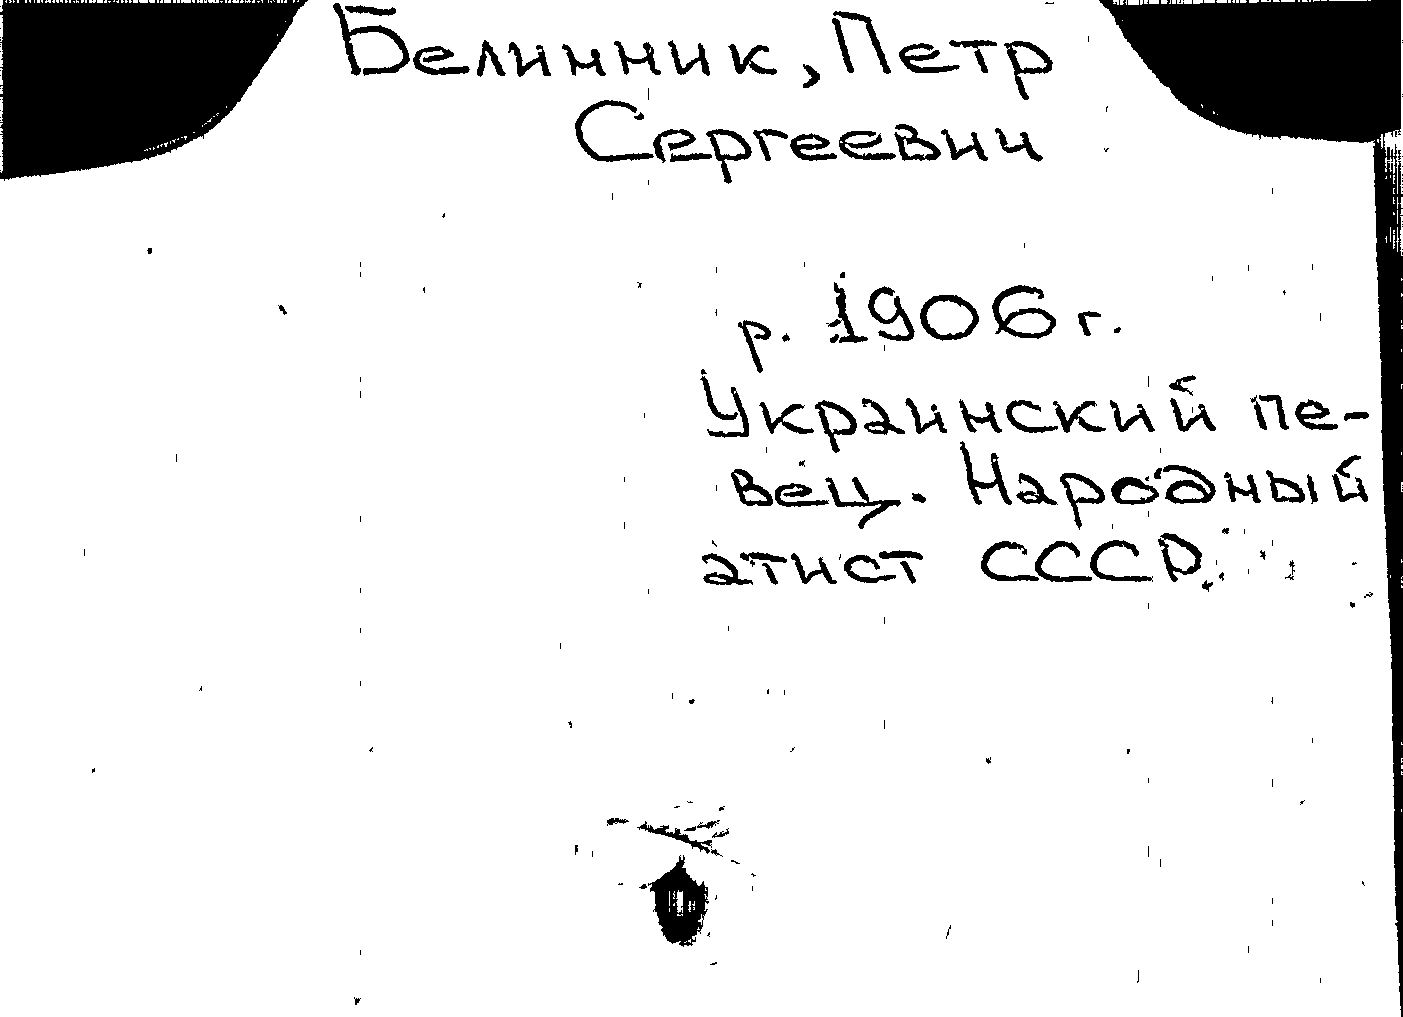 Белинник, Петр
Сергеевич
р. 1906 г.
Украинский пе-
вец. Народный
атист СССР.